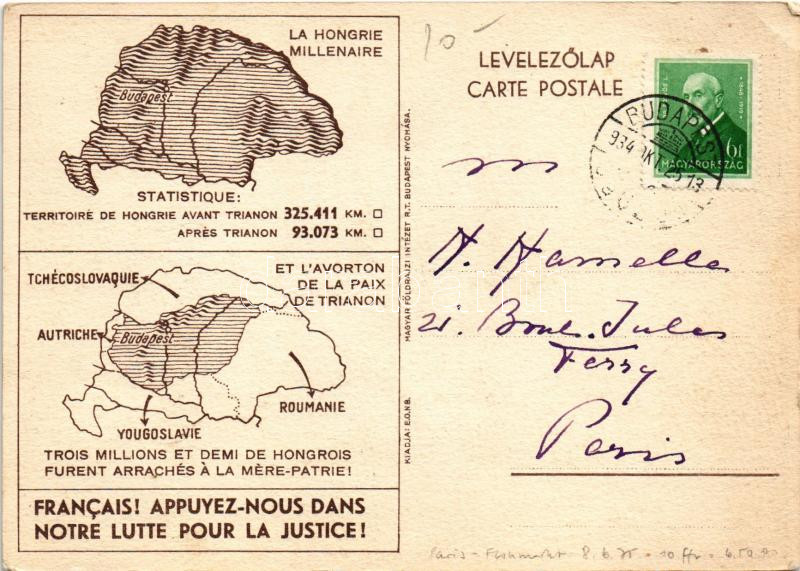 LA HONGRIE
MILLENAIRE
Budapest
STATISTIQUE:
TERRITOIRE DE HONGRIE AVANT TRIANON 325.411 KM. □
APRÈS TRIANON 93.073 KM. □
ET L'AVORTON
DE LA PAIX
DE TRIANON
TCHÉCOSLOVAQUIE
AUTRICHE
Budapest
ROUMANIE
YOUGOSLAVIE
TROIS MILLIONS ET DEMI DE HONGROIS
FURENT ARRACHÉS À LA MÈRE-PATRIE!
FRANÇAIS! APPUYEZ-NOUS DANS
NOTRE LUTTE POUR LA JUSTICE!
MAGYAR FÖLDRAJZI INTÉZET R.T. BUDAPEST NYOMÁSA.
KIADJA: E.O.N.B.
10 -
LEVELEZŐLAP
CARTE POSTALE
6f
MAGYARORSZÁG
BUDAPEST
934
13
21. Boul. Jules
Ferry
Paris
Paris - 8.6.75 - 10 ffr -